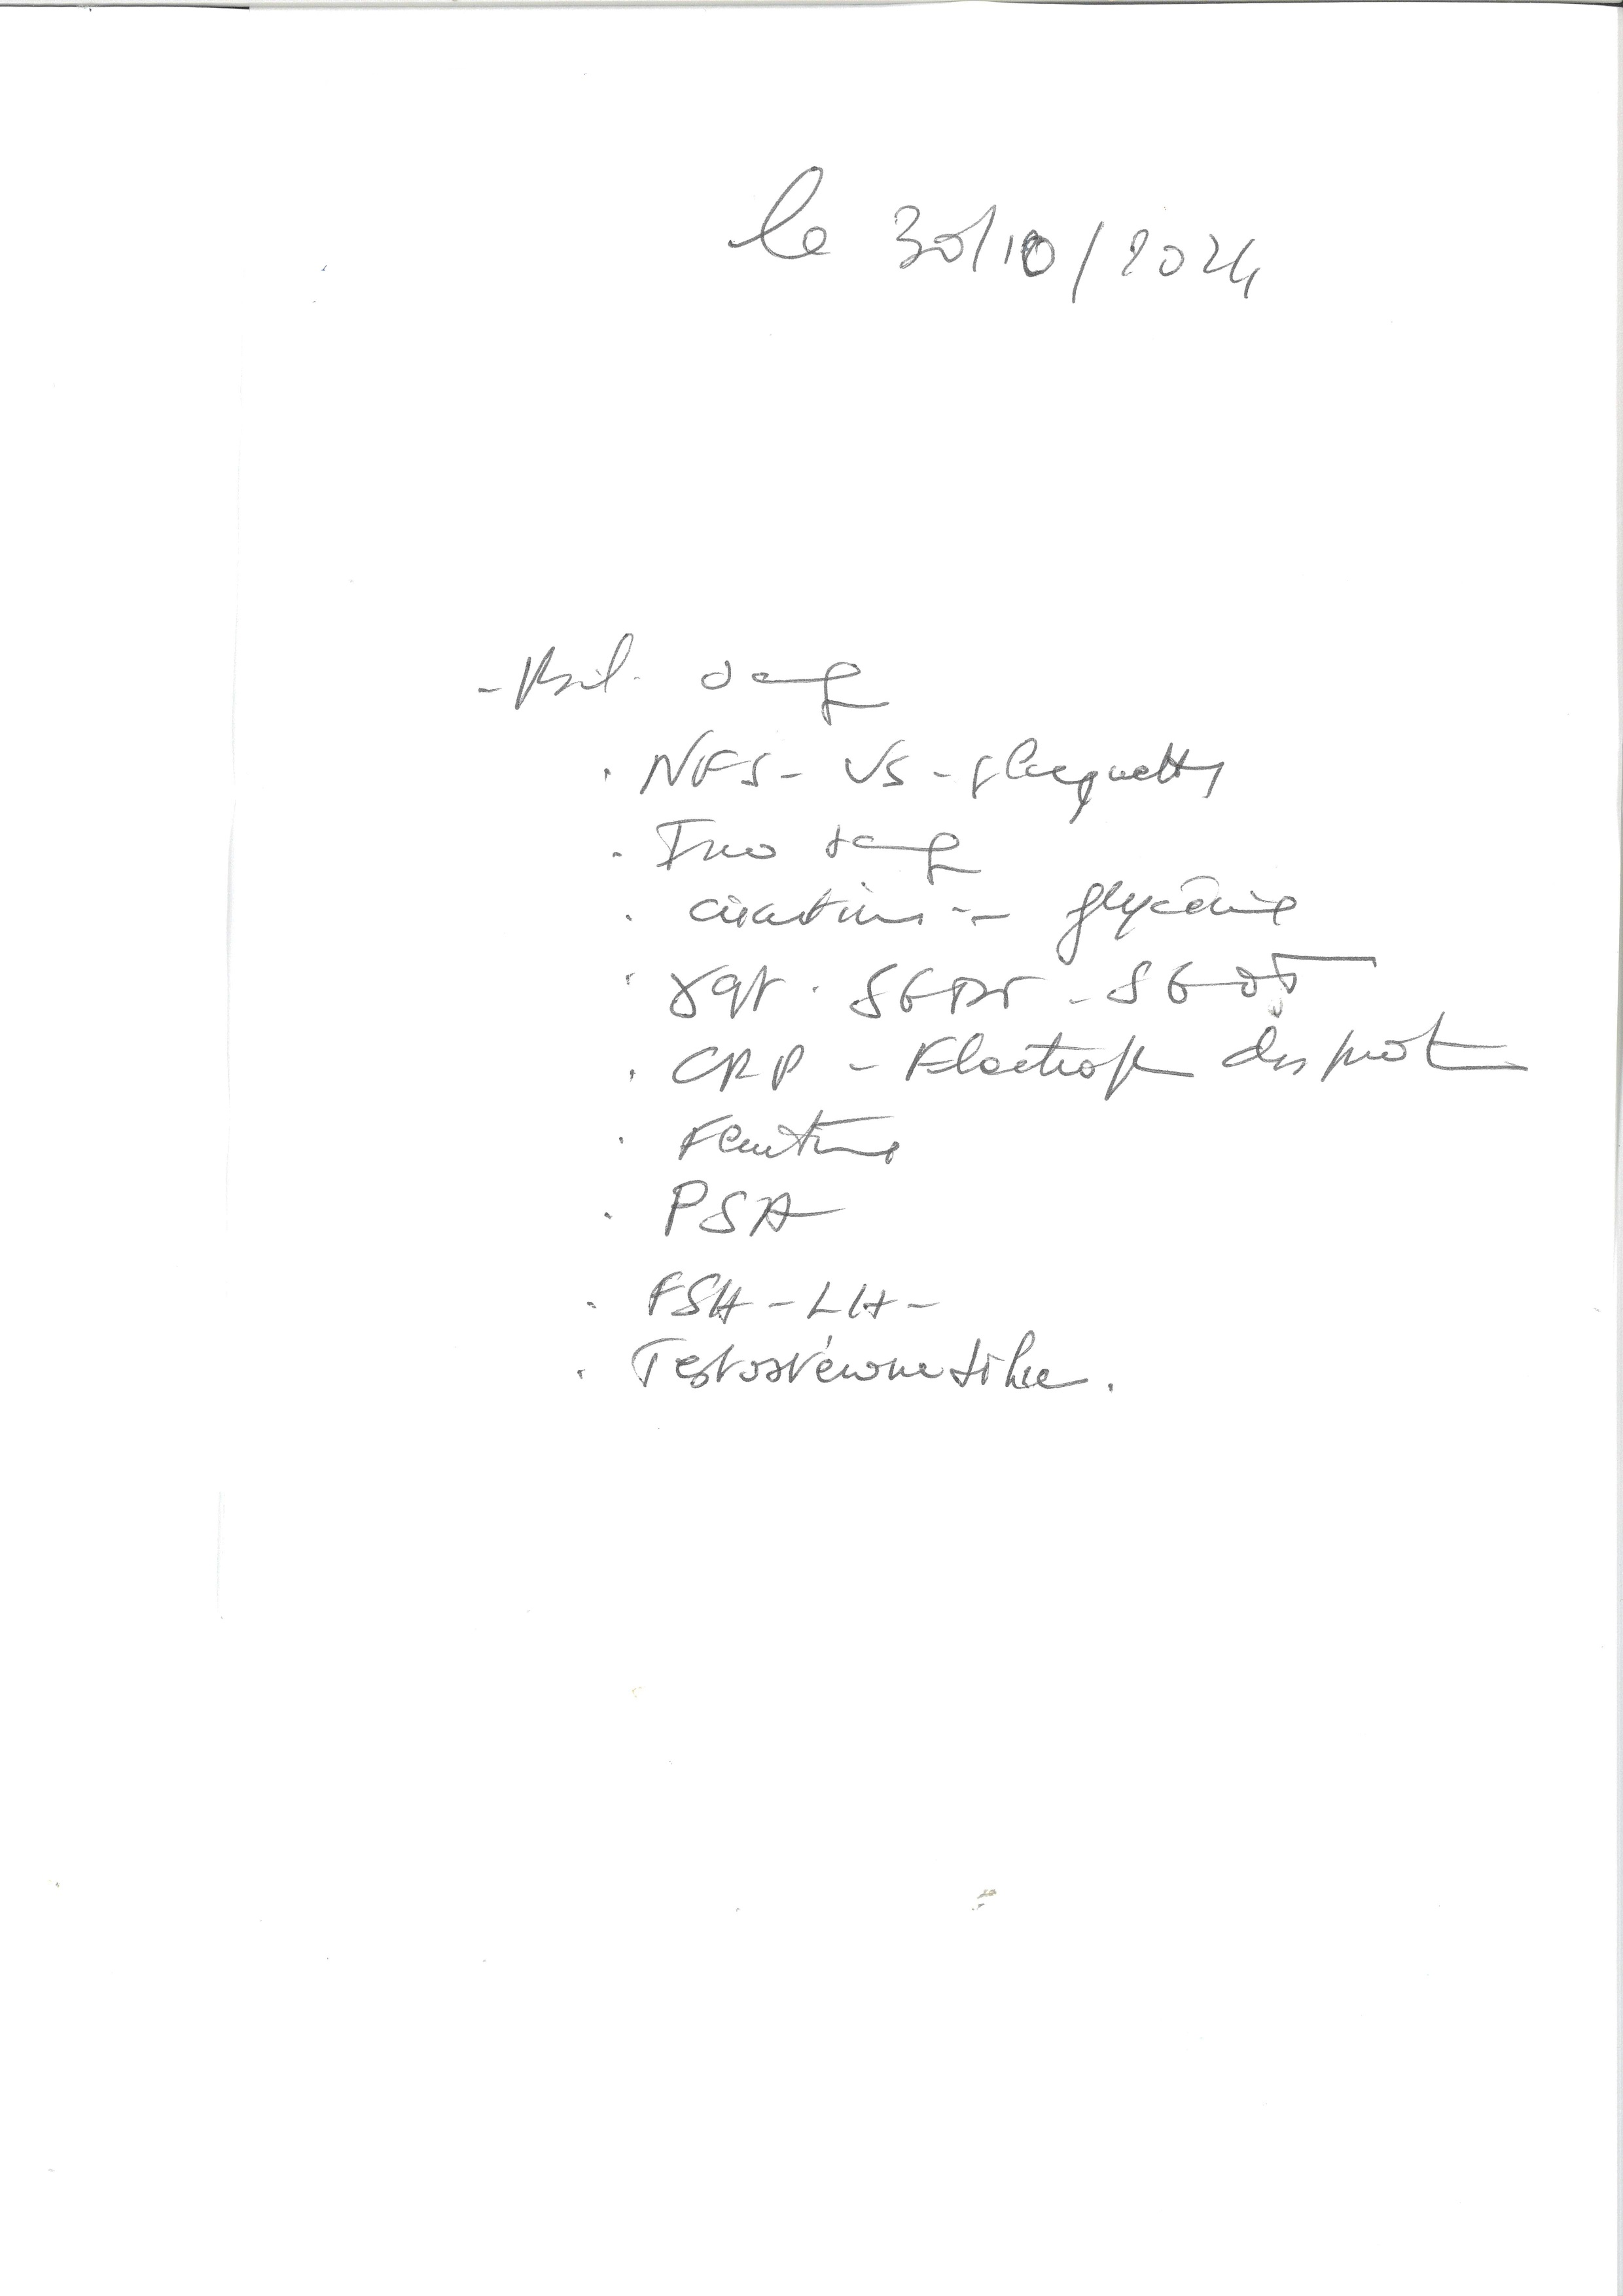 le 30/10/2024
- Bil. sang
. NFS - VS - plaquettes
. Iono sang
. créatinine - glycémie
. γgt . SGPT - SGOT
. CRP - Electroph des prot
. Ferritine
. PSA
. FSH - LH -
. Testostérone libre.